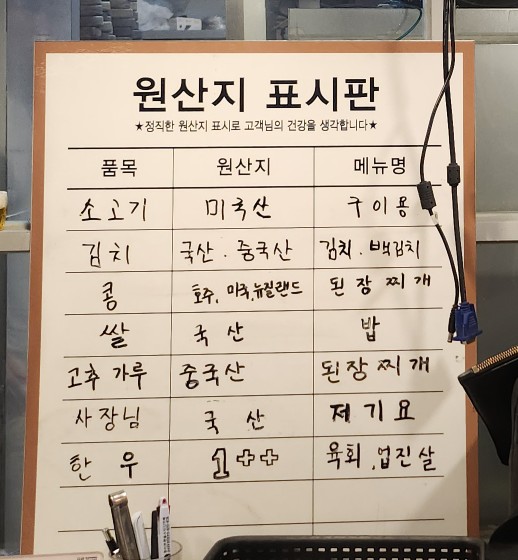 원산지 표시판
★정직한 원산지 표시로 고객님의 건강을 생각합니다★
품목 원산지 메뉴명
소고기 미국산 구이용
김치 국산 . 중국산 김치 . 백김치
콩 호주, 미국,뉴질랜드 된장찌개
쌀 국산 밥
고추가루 중국산 된장찌개
사장님 국산 저기요
한우 1++ 육회 .업진살